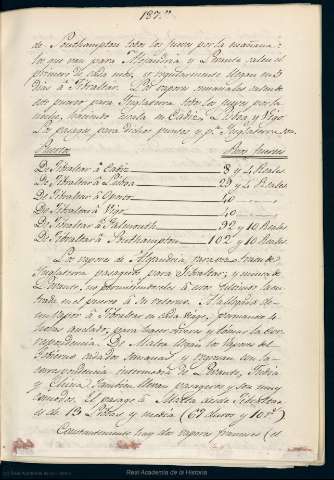 187.
de Southampton todos los jueves por la mañana:
los que van para Alejandria y Levante salen el
primero de cada mes, y regularmente llegan en 5
dias á Gibraltar. Los vapores mensiales salen de
ese puerto para Inglaterra todos los jueves por la
noche, haciendo escala en Cadiz, Lisboa, y Vigo.
Los pasages para dichos puntos y p.ª Inglaterra son
Puertos Pesos fuertes
De Gibraltar á Cadiz 8 y 4 Reales
De Gibraltar á Lisboa 29 y 4 Reales
De Gibraltar á Oporto 40
De Gibraltar á Vigo 40
De Gibraltar á Falmouth 92 y 10 Reales
De Gibraltar á Southampton 102 y 10 Reales
Los vapores de Alejandria, para
Inglaterra pasageros para Gibraltar; y
Levante, no á
en el puerto á su retorno. Á la llegada de
un vapor á Gibraltar permanece 4
horas anclado, para hacer víveres y tomar la cor-
respondencia. De Malta llegan los vapores del
Gobierno cada dos semanas, y regresan con la
correspondencia de Levante, India
y China. Tambien llevan pasageros y son muy
comodos. El pasage á Malta desde Gibraltar
es de 13 Libras y media (67 duros y 10 r.s)
Constantemente hay dos vapores franceses (el
Real Academia de la Historia